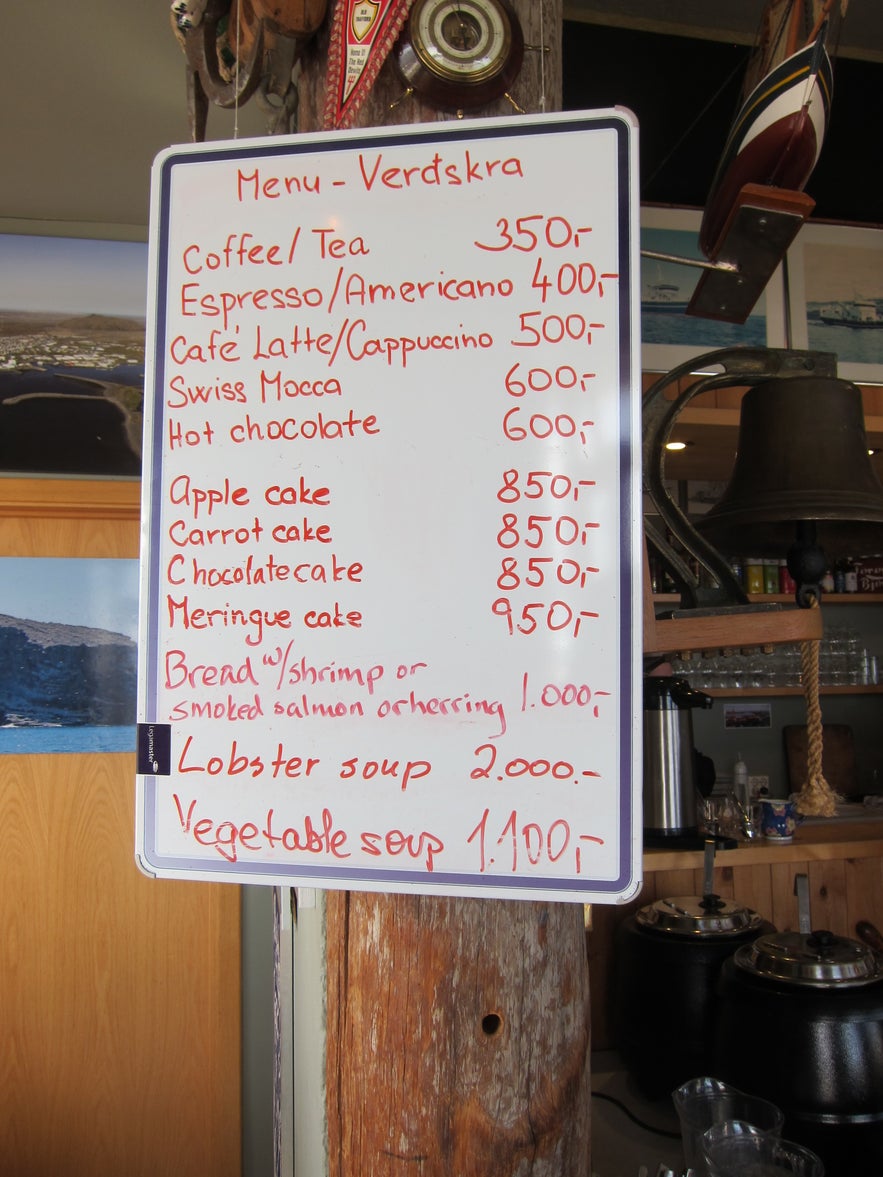 Menu - Verðskrá
Coffee/Tea 350,-
Espresso/Americano 400,-
Café Latte/Cappuccino 500,-
Swiss Mocca 600,-
Hot chocolate 600,-
Apple cake 850,-
Carrot cake 850,-
Chocolatecake 850,-
Meringue cake 950,-
Bread w/shrimp or
smoked salmon or herring 1.000,-
Lobster soup 2.000.-
Vegetable soup 1.100,-
Legamaster